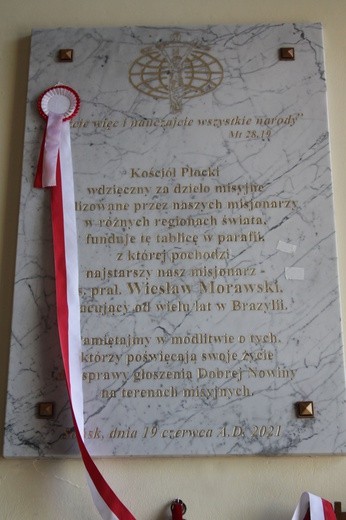 więc i nauczajcie wszystkie narody"
Mt 28,19
Kościół Płocki
wdzięczny za dzieło misyjne
lizowane przez naszych misjonarzy
w różnych regionach świata,
funduje tę tablicę w parafii,
z której pochodzi
najstarszy nasz misjonarz -
s. prał. Wiesław Morawski,
acujący od wielu lat w Brazylii.
amiętajmy w modlitwie o tych,
którzy poświęcają swoje życie
sprawy głoszenia Dobrej Nowiny
na terenach misyjnych.
sk, dnia 19 czerwca A.D. 2021